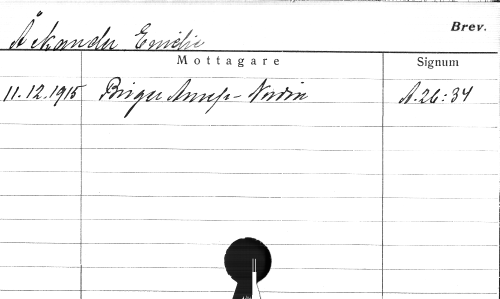 Brev.
Åkander Emilie
Mottagare Signum
11.12.1915 Birger Anrep-Nordin A.26:34